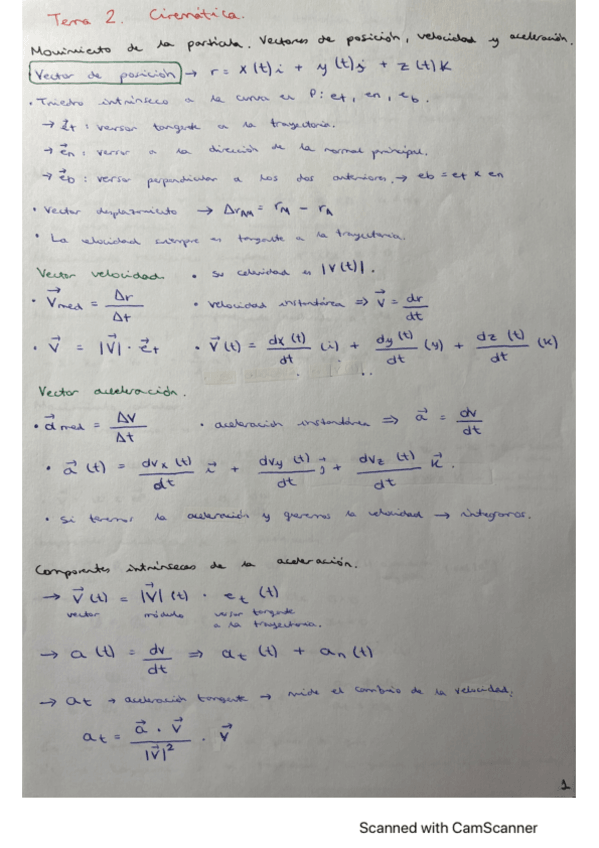 Tema 2. Cinemática.
Movimiento de la partícula. Vectores de posición, velocidad y aceleración.
Vector de posición → r = x(t)i + y(t)j + z(t)K
• Triedro intrínseco a la curva en P: et, en, eb.
→ e⃗t : versor tangente a la trayectoria.
→ e⃗n : versor a la dirección de la normal principal.
→ e⃗b : versor perpendicular a los dos anteriores. → eb = et x en
• Vector desplazamiento → ΔrAM = rM − rA
• La velocidad siempre es tangente a la trayectoria.
Vector velocidad. • su celeridad es |v(t)|.
• V⃗med = Δr/Δt • velocidad instantánea ⇒ v⃗ = dr/dt
• V⃗ = |V⃗| · e⃗t • v⃗(t) = dx(t)/dt (i) + dy(t)/dt (y) + dz(t)/dt (K)
Vector aceleración.
• a⃗med = Δv/Δt • aceleración instantánea ⇒ a⃗ = dv/dt
• a⃗(t) = dvx(t)/dt i⃗ + dvy(t)/dt j⃗ + dvz(t)/dt K⃗.
• Si tenemos la aceleración y queremos la velocidad → integramos.
Componentes intrínsecas de la aceleración.
→ v⃗(t) = |V⃗|(t) · et(t)
vector módulo versor tangente
a la trayectoria.
→ a(t) = dv/dt ⇒ at(t) + an(t)
→ at → aceleración tangente → mide el cambio de la velocidad.
at = a⃗ · v⃗ / |v⃗|² · v⃗
1
Scanned with CamScanner